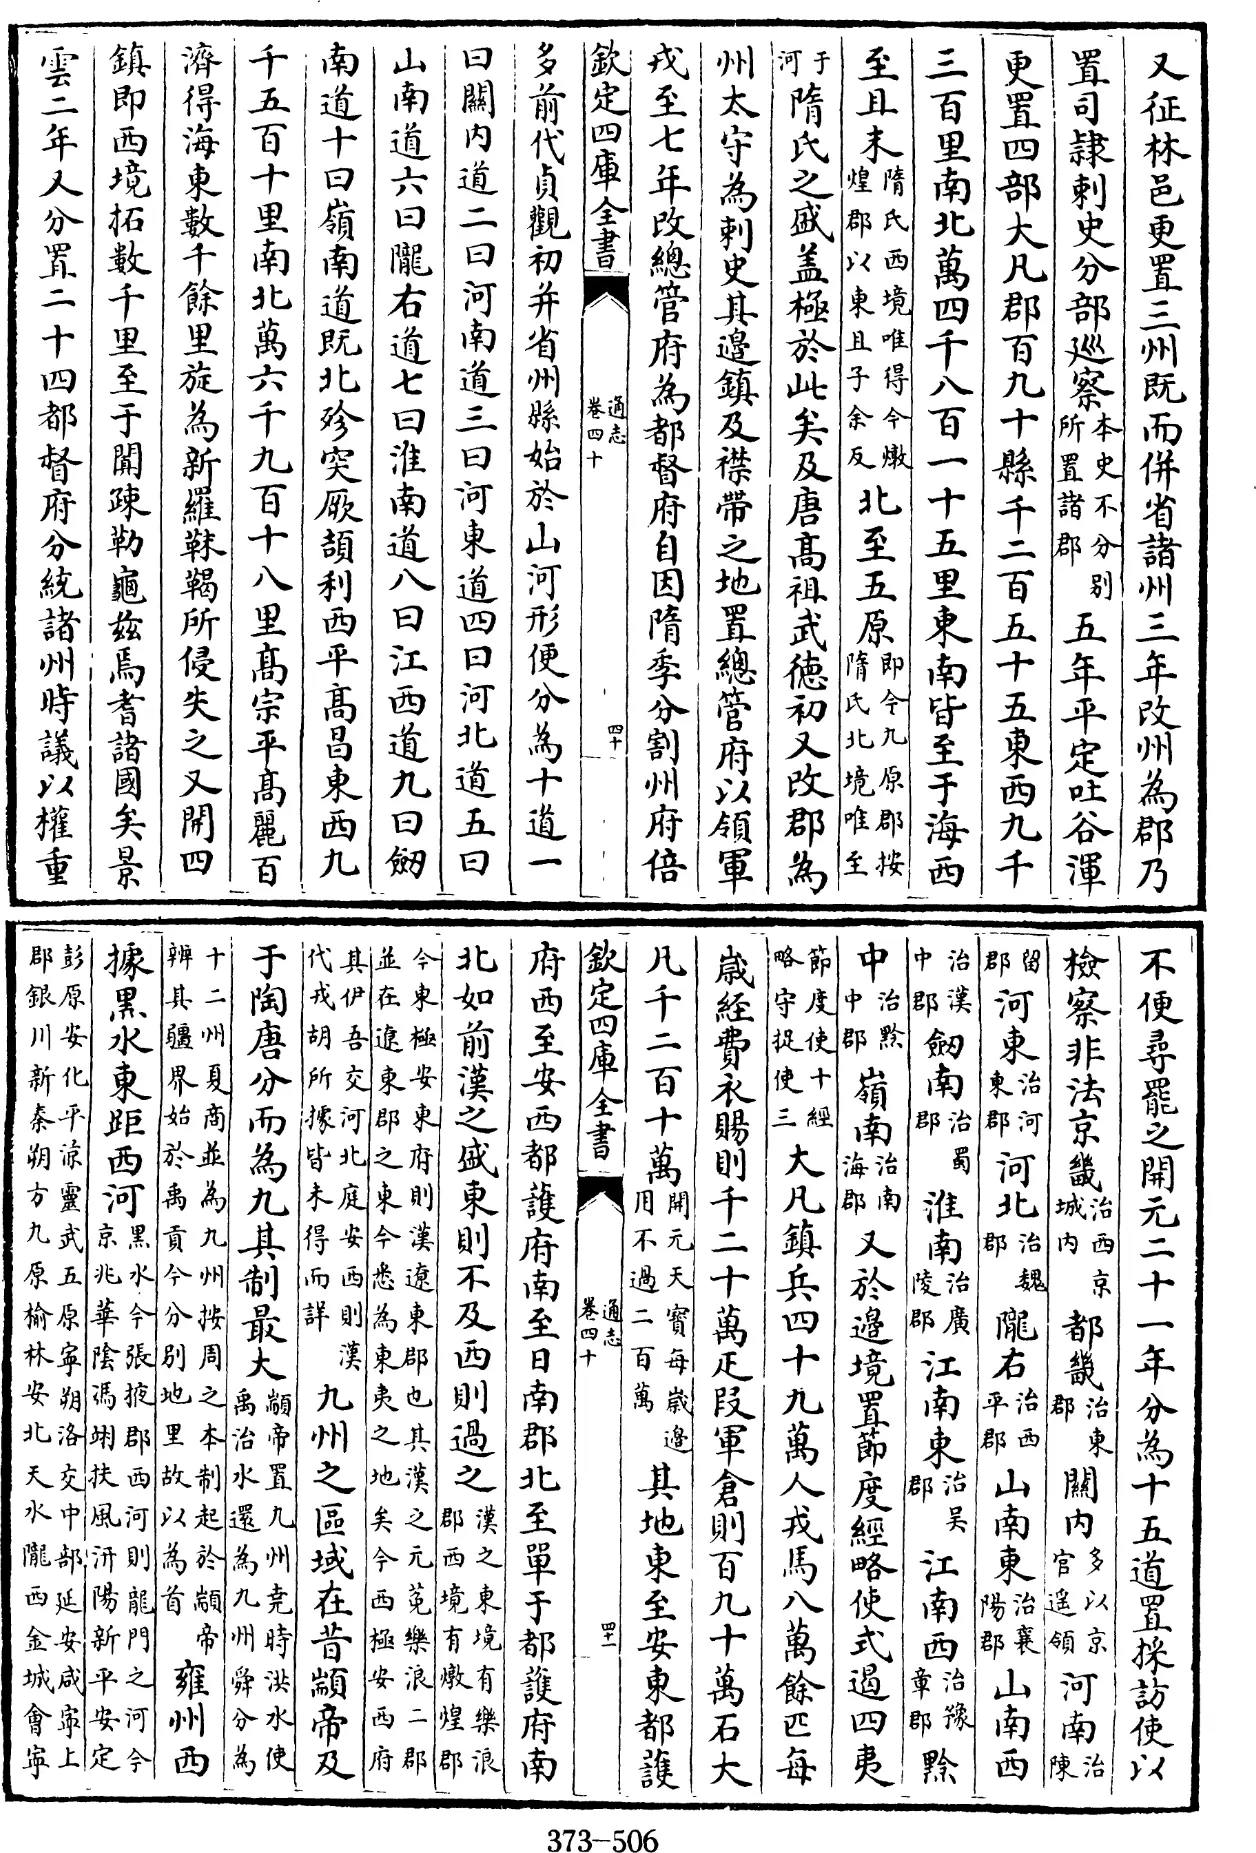 又征林邑更置三州既而併省諸州三年改州為郡乃
置司隸刺史分部廵察本史不分别所置諸郡五年平定吐谷渾
更置四部大凡郡百九十縣千二百五十五東西九千
三百里南北萬四千八百一十五里東南皆至于海西
至且末隋氏西境唯得今燉煌郡以東且子余反北至五原即今九原郡按隋氏北境唯至
于河隋氏之盛盖極於此矣及唐髙祖武徳初又改郡為
州太守為刺史其邉鎮及襟帶之地置總管府以領軍
戎至七年改總管府為都督府自因隋季分割州府倍
欽定四庫全書
通志
卷四十
四十
多前代貞觀初并省州縣始於山河形便分為十道一
曰關内道二曰河南道三曰河東道四曰河北道五曰
山南道六曰隴右道七曰淮南道八曰江西道九曰劒
南道十曰嶺南道既北殄突厥頡利西平髙昌東西九
千五百十里南北萬六千九百十八里髙宗平髙麗百
濟得海東數千餘里旋為新羅靺鞨所侵失之又開四
鎮即西境拓數千里至于闐疎勒龜兹焉耆諸國矣景
雲二年又分置二十四都督府分統諸州時議以權重
不便尋罷之開元二十一年分為十五道置採訪使以
檢察非法京畿治西京城内都畿治東郡關内多以京官遥領河南治陳
留郡河東治河東郡河北治魏郡隴右治西平郡山南東治襄陽郡山南西
治漢中郡劒南治蜀郡淮南治廣陵郡江南東治吴郡江南西治豫章郡黔
中治黔中郡嶺南治南海郡又於邉境置節度經略使式遏四夷
節度使十經略守捉使三大凡鎮兵四十九萬人戎馬八萬餘匹每
嵗經費衣賜則千二十萬疋段軍倉則百九十萬石大
凡千二百十萬開元天寳每嵗邉用不過二百萬其地東至安東都護
欽定四庫全書
通志
卷四十
四十一
府西至安西都護府南至日南郡北至單于都護府南
北如前漢之盛東則不及西則過之漢之東境有樂浪郡西境有燉煌郡
今東極安東府則漢遼東郡也其漢之元菟樂浪二郡並在遼東郡之東今悉為東夷之地矣今西極安西府
其伊吾交河北庭安西則漢代戎胡所據皆未得而詳九州之區域在昔顓帝及
于陶唐分而為九其制最大顓帝置九州堯時洪水使禹治水還為九州舜分為
十二州夏商並為九州按周之本制起於顓帝辨其疆界始於禹貢今分别地里故以為首雍州西
據黒水東距西河黒水今張掖郡西河則龍門之河今京兆華隂馮翊扶風汧陽新平安定
彭原安化平凉靈武五原寧朔洛交中部延安咸寧上郡銀川新秦朔方九原榆林安北天水隴西金城會寧
373-506